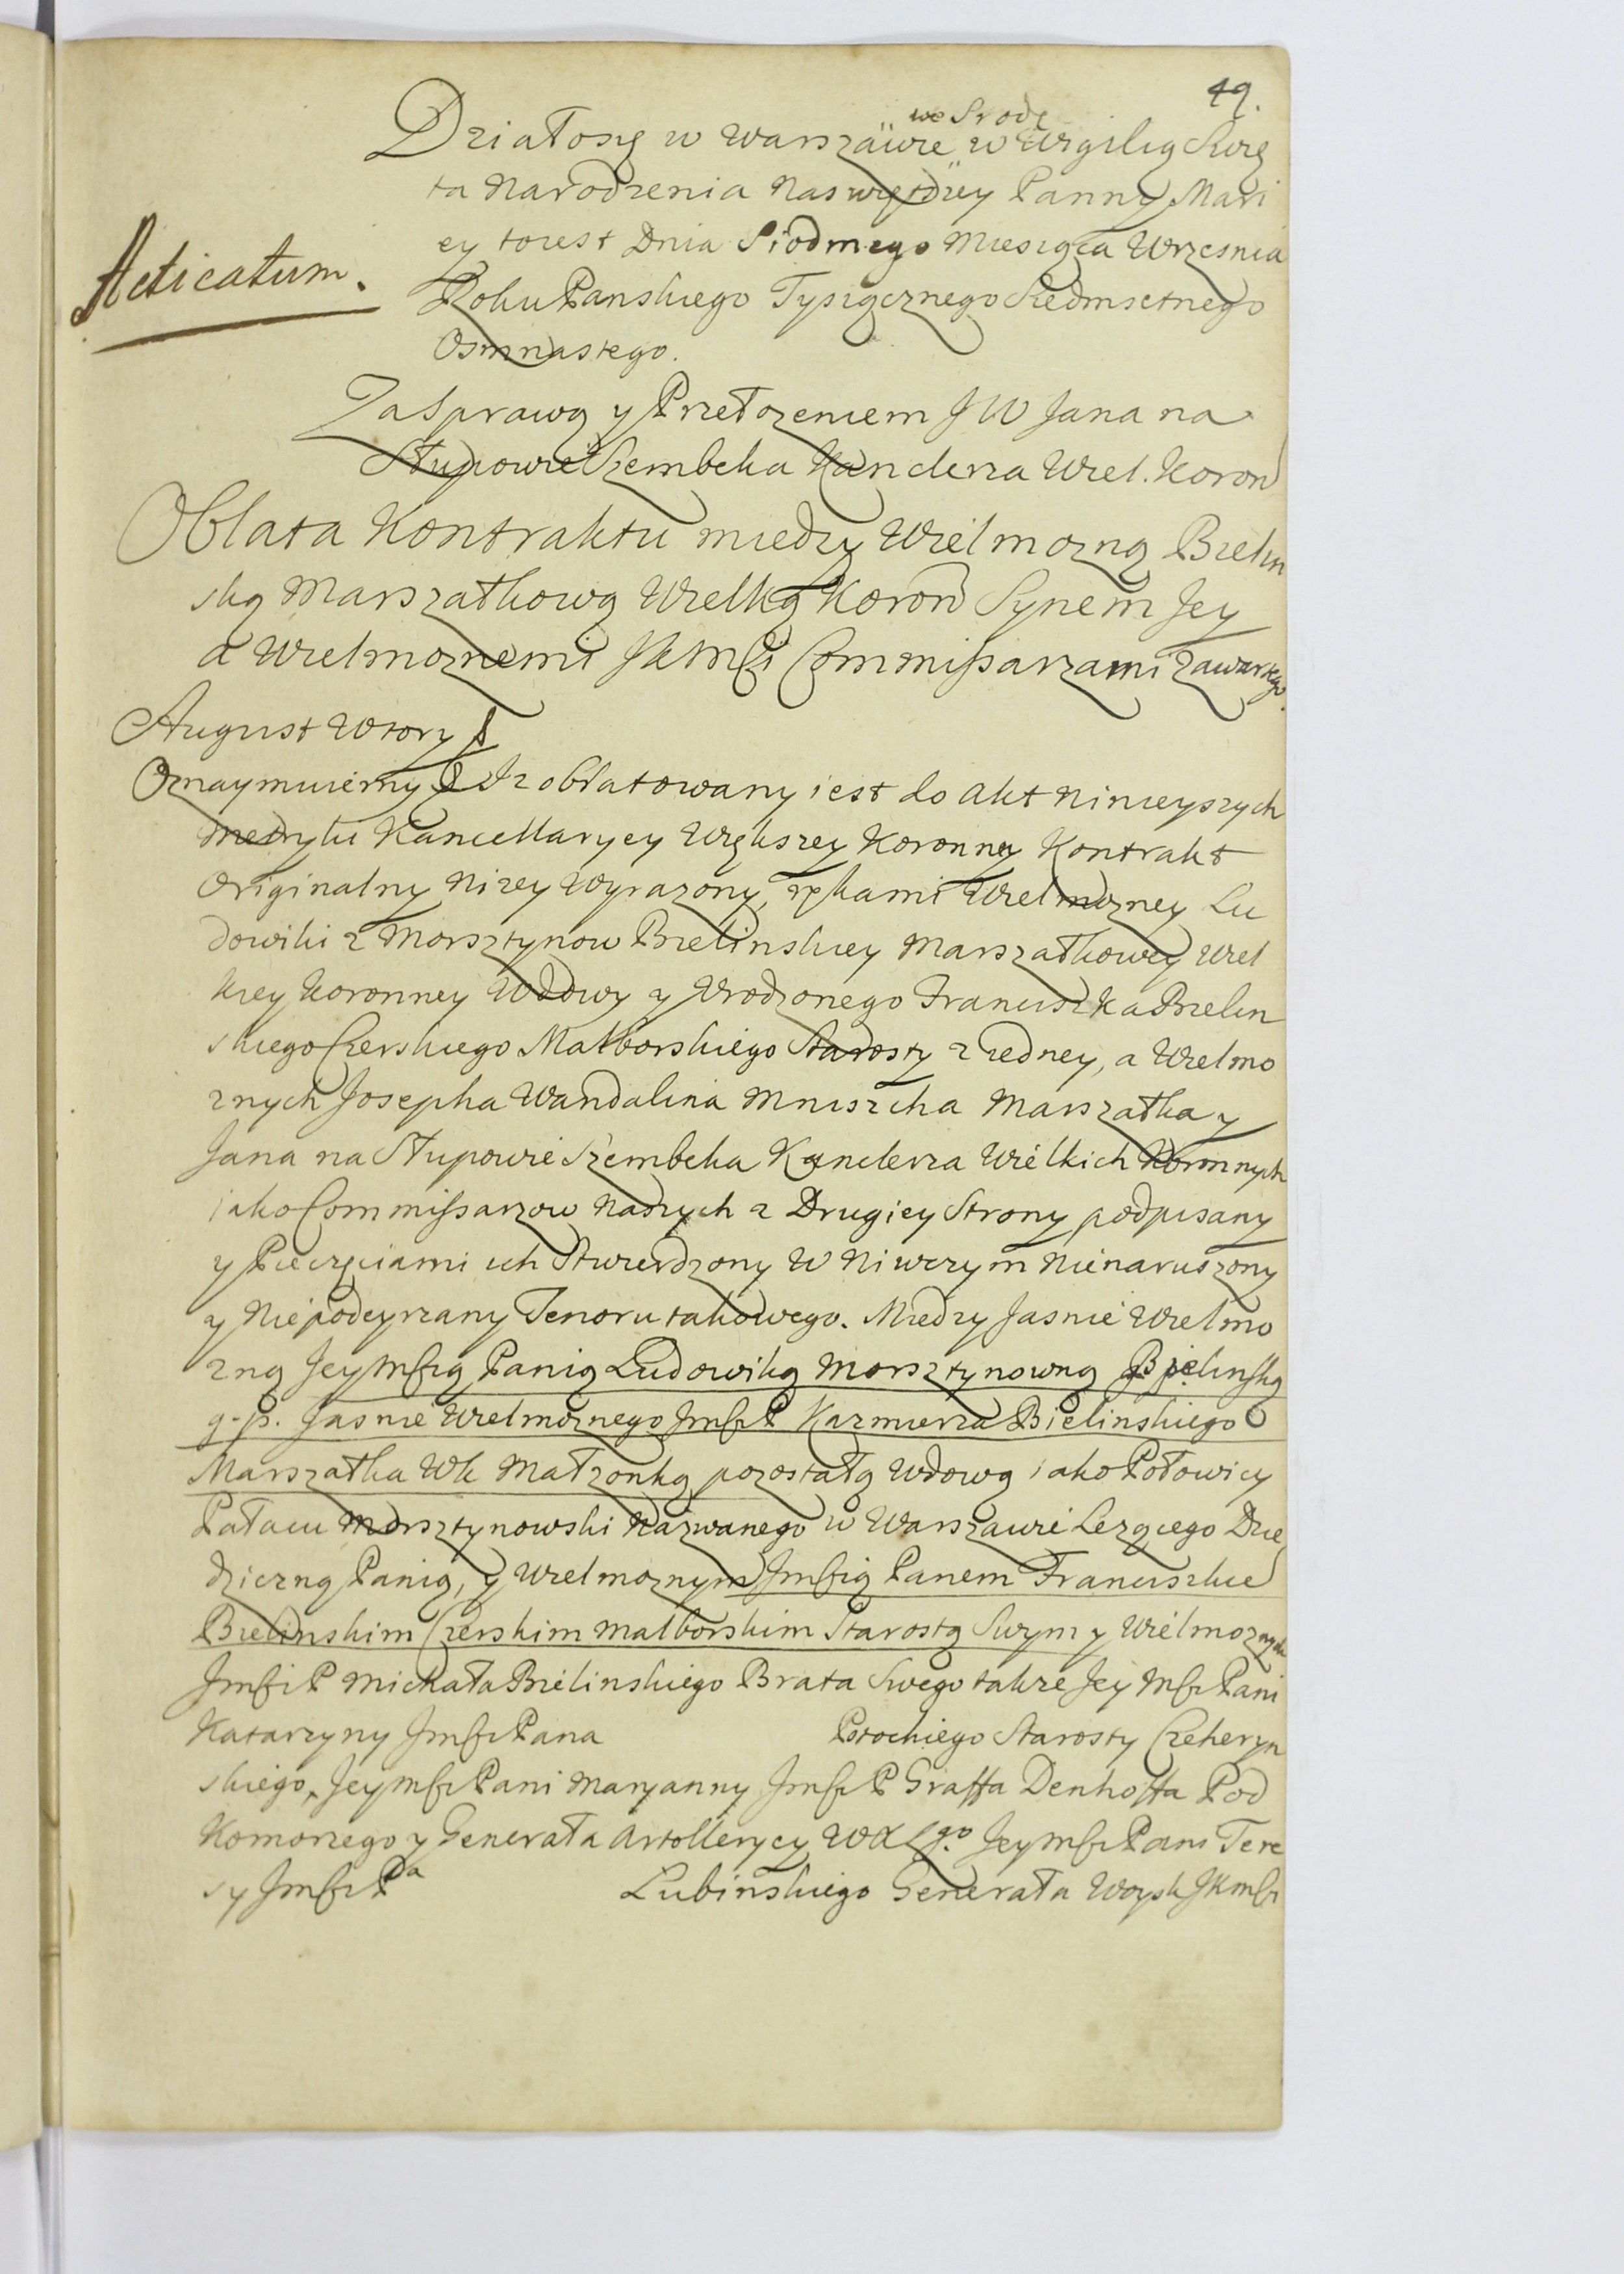 49.
we Srodę
Działosię w Warszawie w Wigilię Swię
ta Narodzenia Naswiętszey Panny Mari
ey toiest Dnia Siodmego Miesiąca Wrzesnia
Acticatum.
Roku Panskiego Tysiącznego Siedmsetnego
Osmnastego.
Za Sprawą y Przełozeniem J W Jana na
Słupowie Szembeka Kanclerza Wiel. Koron
Oblata Kontraktu miedzy Wielmozną Bielin
ską Marszałkową Wielką Koron Synem Jey
a Wielmoznemi JKMći Commissarzami zawartego.
August Wtory
Oznaymuiemy Iz oblatowany iest do Akt Ninieyszych
Metryki Kancellaryey Większey Koronney Kontrakt
Originalny Nizey Wyrazony, rękami Wielmozney Lu
dowiki z Morsztynow Bielinskiey Marszałkowey Wiel
kiey Koronney Wdowy y Urodzonego Franciszka Bielin
skiego Czerskiego Malborskiego Starosty z iedney, a Wielmo
znych Josepha Wandalina Mniszcha Marszałka y
Jana na Słupowie Szembeka Kanclerza Wielkich Koronnych
iako Commissarzow Naszych z Drugiey Strony podpisany
y Pieczęciami ich Stwierdzony W Niwczym Nienaruszony
y Niepodeyrzany Tenoru takowego. Miedzy Jasnie Wielmo
zną Jeymścią Panią Ludowiką Morsztynowną Bielinską
g. p. Jasnie Wielmoznego Jmści P Kazmierza Bielinskiego
Marszałka Wk Małzonką pozostałą Wdową iako Połowicy
Pałacu Morsztynowski Nazwanego w Warszawie Lezącego Dzie
dziczną Panią, y Wielmoznym Jmścią Panem Franciszkie
Bielinskim Czerskim Malborskim Starostą Swym y Wielmoznych
Jmści P Michała Bielinskiego Brata Swego takze Jey Mści Pani
Katarzyny Jmści Pana Potockiego Starosty Czeheryn
skiego, Jeymści Pani Maryanny Jmści P Graffa Denhoffa Pod
Komorzego y Generała Artolleryey WXLgo. Jeymści Pani Tere
sy Jmści Pa Lubinskiego Generała Woysk JKmści